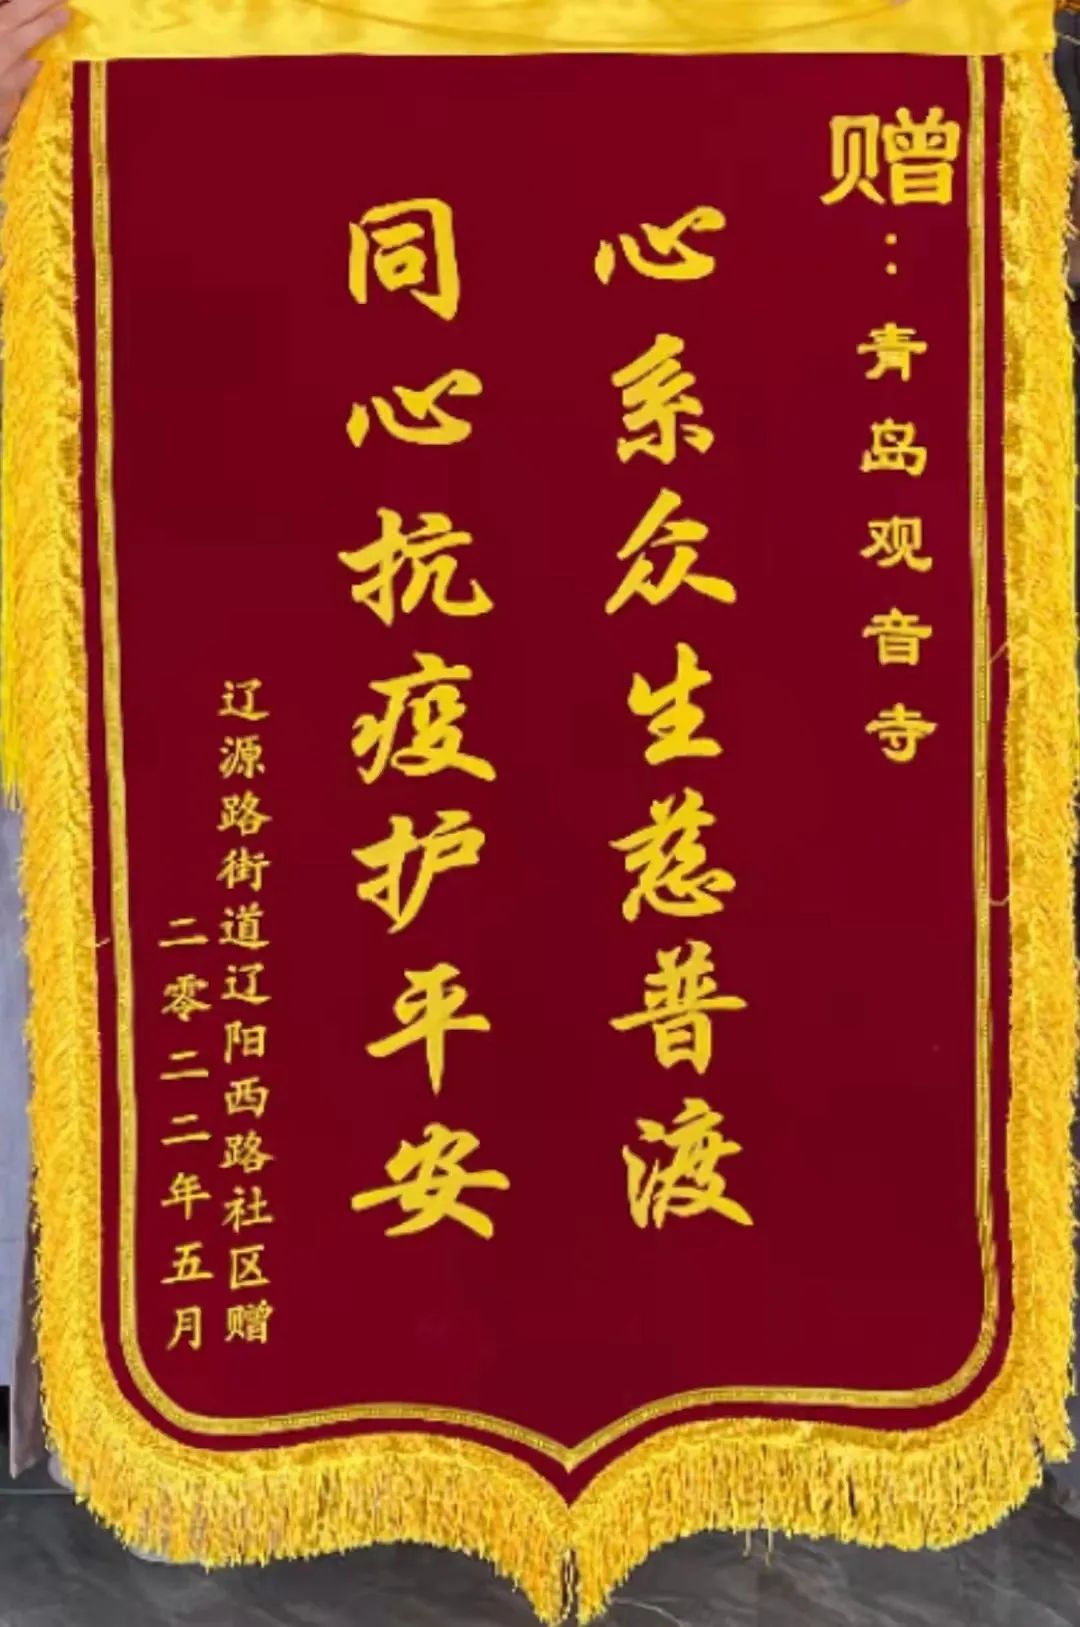 赠：青岛观音寺
心系众生慈普渡
同心抗疫护平安
辽源路街道辽阳西路社区赠
二零二二年五月